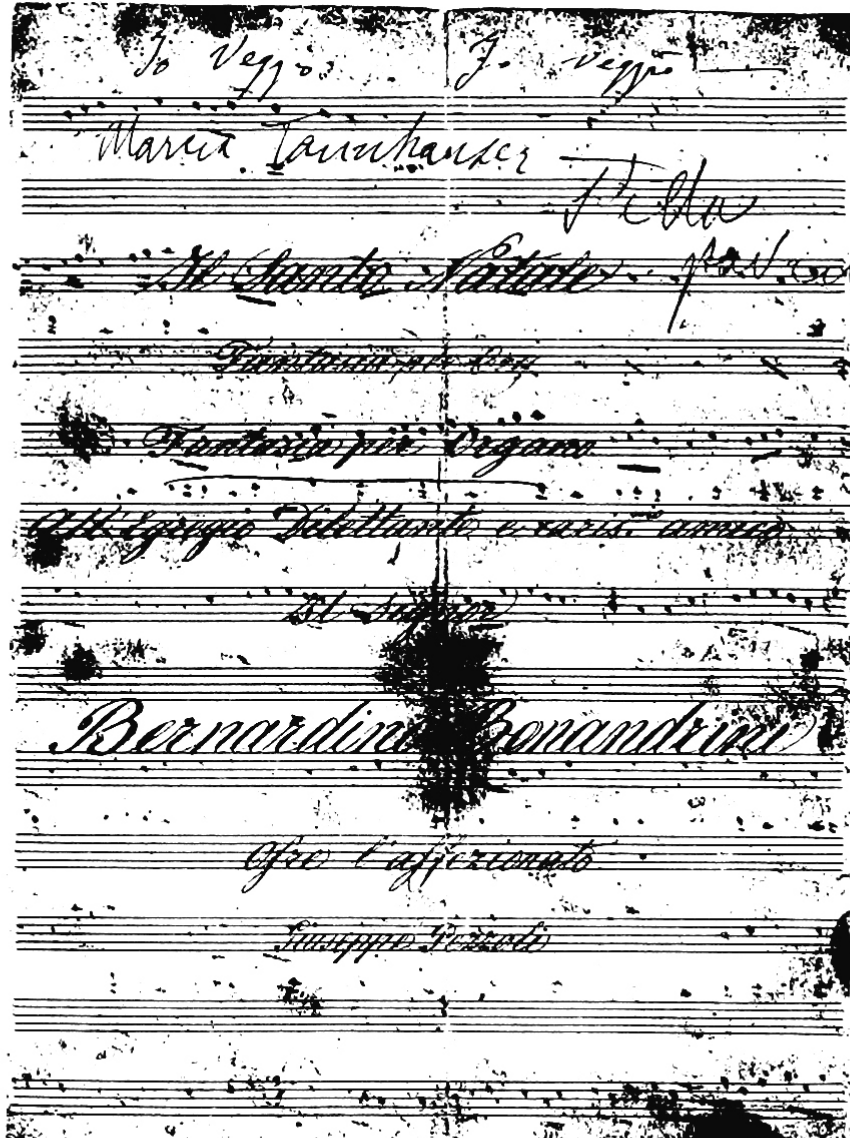 Io Veggo. Io veggo
Marcia Tannhauser
Il Santo Natale
Fantasia per Org
Fantasia per Organo
All'Egregio Dilettante e caris.mo amico
Il Signor
Bernardino Bonandrini
Ofre l'affezionato
Giuseppe Pezzoli